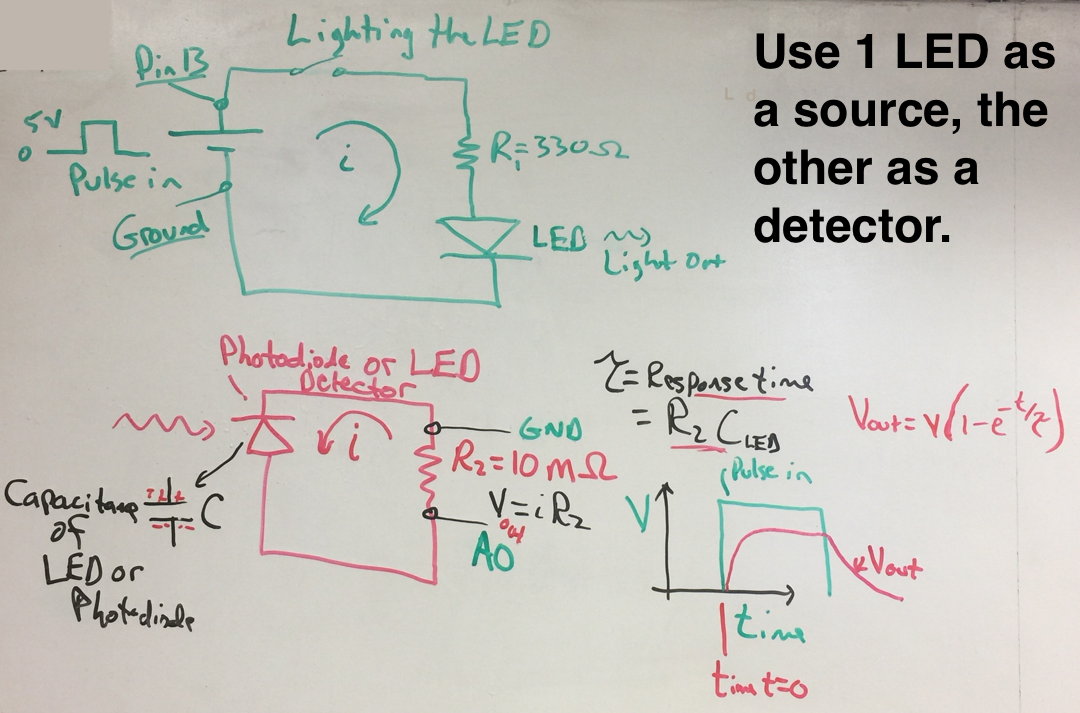 Lighting the LED
Use 1 LED as
a source, the
other as a
detector.
Pin 13
5V
0
Pulse in
Ground
i
R₁=330Ω
LED
Light Out
Photodiode or LED
Detector
i
GND
R₂=10 MΩ
V=iR₂
out
A0
Capacitance
of
LED or
Photodiode
C
τ=Response time
= R₂ C LED
Vout=V(1-e^-t/τ)
Pulse in
V
Vout
time
time t=0